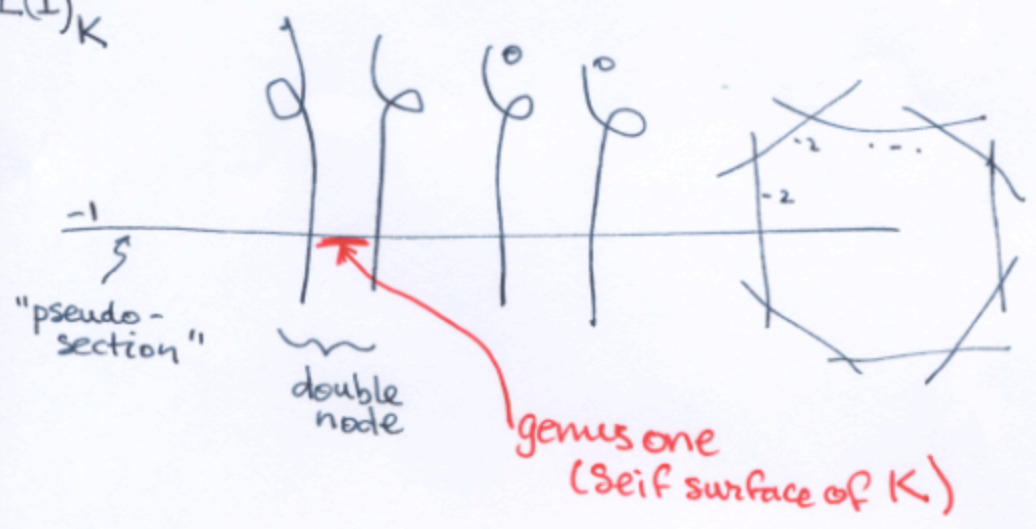 E(1)K
0
0
-2
. - .
-2
-1
"pseudo-
section"
double
node
genus one
(Seif surface of K)